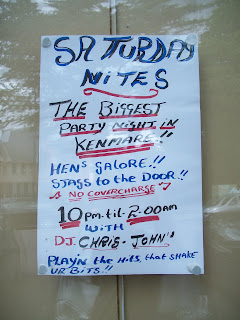 SATURDAY
NITES
THE BIGGEST
PARTY NIGHT IN
KENMARE!!
HEN'S GALORE!!
STAGS to the DOOR!!
NO COVERCHARGE
10 P.M. til 2.00AM
WITH
D.J. CHRIS-JOHN"
PLAY'N the Hits, that SHAKE
UR BITS!!